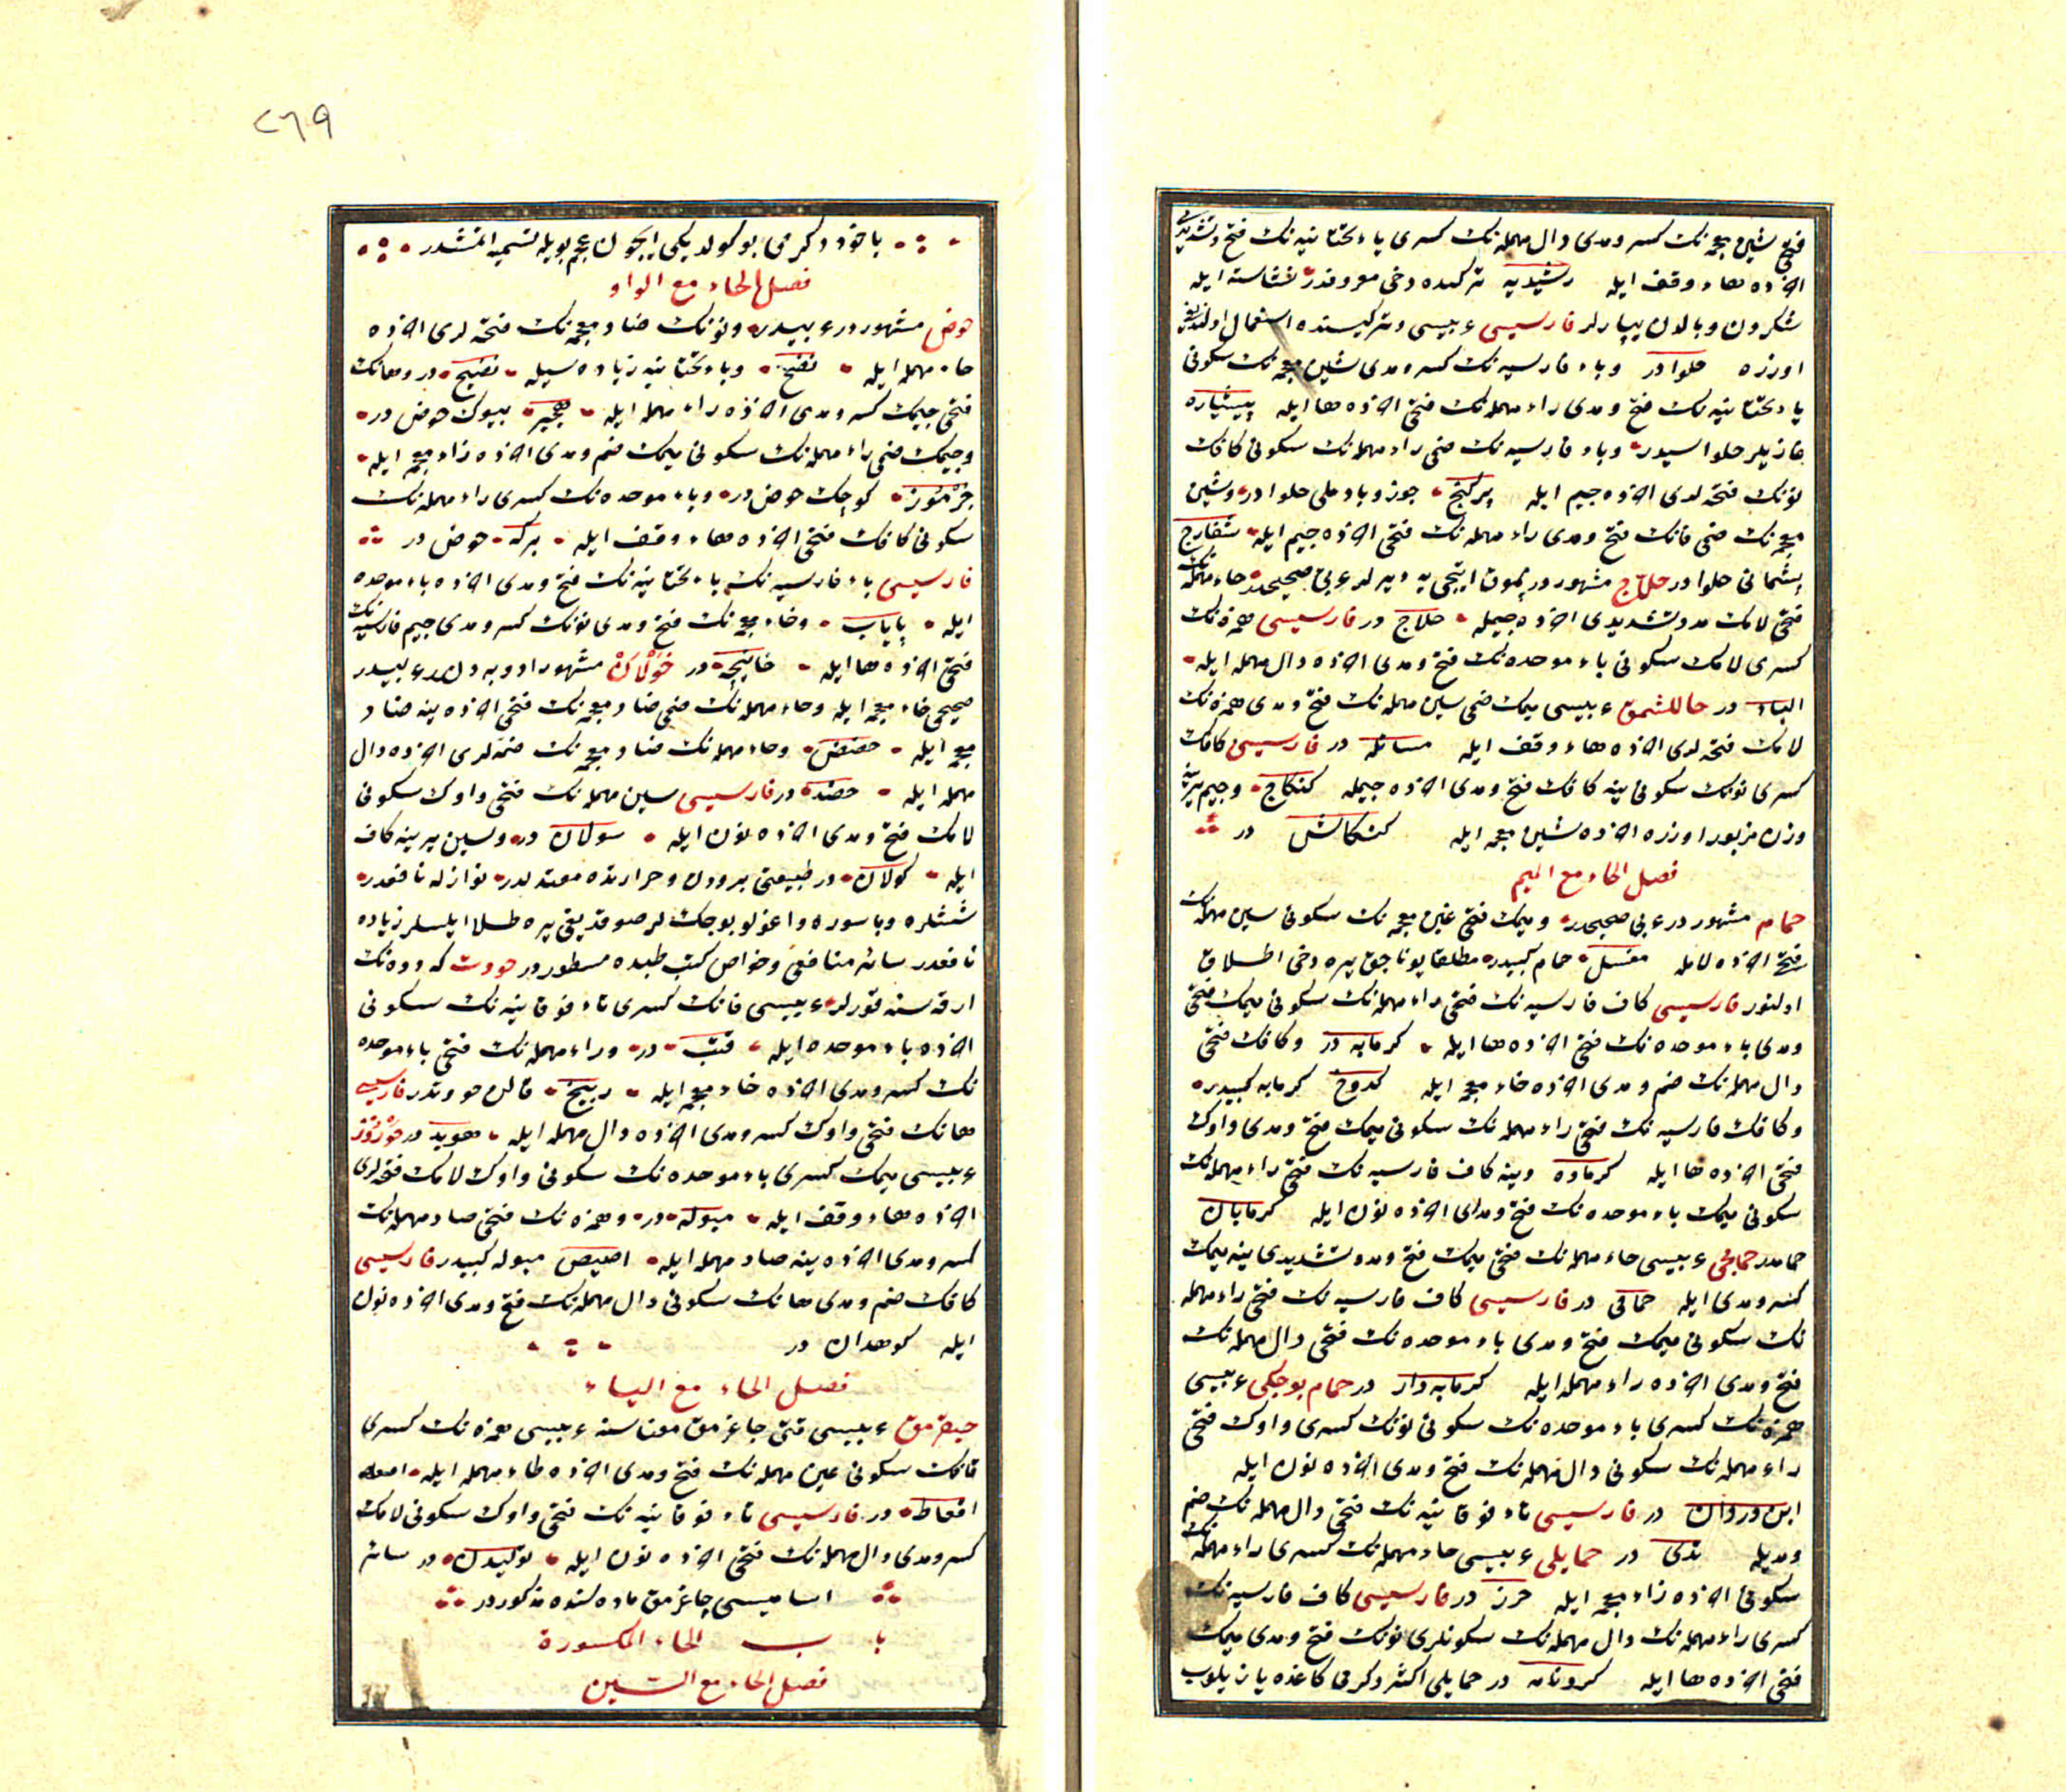 فتحى شين معجمه نك كسر و مدى دال مهمله نك كسرى ياء تحتانيه نك فتح و تشديدى
آخرنده هاء وقف ايله رشيديه تركيده دخى معروفدر نشاسته ايله
شكردن و بالدن يپارلر فارسيسى عربيسى و تركيسنده استعمال اولنديغى
اوزره حلوادر و باء فارسيه نك كسر و مدى شين معجمه نك سكونى
ياء تحتانيه نك فتح و مدى راء مهمله نك فتحى آخرنده ها ايله پيشياره
غازيلر حلواسيدر و باء فارسيه نك ضمى راء مهمله نك سكونى كافك
نونك فتحه لرى آخرنده جيم ايله پركنج جوز و بادملى حلوادر و شين
معجمه نك ضمى فانك فتح و مدى راء مهمله نك فتحى آخرنده جيم ايله شفارج
پشمانى حلوادر حلاج مشهوردر پموق ايتجى يه ديرلر عربى صحيحدر حاء مهمله نك
فتحى لامك مد و تشديدى آخرنده جيمله حلاج در فارسيسى همزه نك
كسرى لامك سكونى باء موحده نك فتح و مدى آخرنده دال مهمله ايله
الباد در حاللشمق عربيسى ميمك ضمى سين مهمله نك فتح و مدى همزه نك
لامك فتحه لرى آخرنده هاء وقف ايله مسائله در فارسيسى كافك
كسرى نونك سكونى ينه كافك فتح و مدى آخرنده جيمله كنكاج و جيم يرينه
وزن مزبور اوزره آخرنده شين معجمه ايله كنكاش در
فصل الحاء مع الميم
حمام مشهوردر عربى صحيحدر و ميمك فتحى غين معجمه نك سكونى سين مهمله نك
فتحى آخرنده لامله مغسل حمام كبيدر مطلقا يوناجق يره دخى اطلاق
اولنور فارسيسى كاف فارسيه نك فتحى راء مهمله نك سكونى ميمك فتحى
و مدى باء موحده نك فتحى آخرنده ها ايله كرمابه در و كافك فتحى
دال مهمله نك ضم و مدى آخرنده خاء معجمه ايله كدوخ كرمابه كبيدر
و كافك فارسيه نك فتحى راء مهمله نك سكونى ميمك فتح و مدى واوك
فتحى آخرنده ها ايله كرماوه و ينه كاف فارسيه نك فتحى راء مهمله نك
سكونى ميمك باء موحده نك فتح و مدلرى آخرنده نون ايله كرمابان
حمامدر حمامجى عربيسى حاء مهمله نك فتحى ميمك فتح و مد و تشديدى ينه ميمك
كسر و مدى ايله حمامى در فارسيسى كاف فارسيه نك فتحى راء مهمله
نك سكونى ميمك فتح و مدى باء موحده نك فتحى دال مهمله نك
فتح و مدى آخرنده راء مهمله ايله كرمابه دار در حمام بوجكى عربيسى
همزه نك كسرى باء موحده نك سكونى نونك كسرى واوك فتحى
راء مهمله نك سكونى دال مهمله نك فتح و مدى آخرنده نون ايله
ابن وردان در فارسيسى تاء فوقانيه نك فتحى دال مهمله نك ضم
و مديله تدو در حمايلى عربيسى حاء مهمله نك كسرى راء مهمله نك
سكونى آخرنده زاء معجمه ايله حرز در فارسيسى كاف فارسيه نك
كسرى راء مهمله نك دال مهمله نك سكونلرى نونك فتح و مدى ميمك
فتحى آخرنده ها ايله كردنامه در حمايلى اكثر دكرمى كاغده يازيلوب
٢٦٩
ياخود دكرمى بوكولديكى ايچون عجم بويله تسميه اتمشدر
فصل الحاء مع الواو
حوض مشهوردر عربيدر و نونك ضاد معجمه نك فتحه لرى آخرنده
حاء مهمله ايله نضح و ياء تحتانيه زياده سيله نضيح در و هانك
فتحى جيمك كسر و مدى آخرنده راء مهمله ايله هجير بيوك حوض در
و جيمك ضمى راء مهمله نك سكونى ميمك ضم و مدى آخرنده زاء معجمه ايله
جرموز كوچك حوض در و باء موحده نك كسرى راء مهمله نك
سكونى كافك فتحى آخرنده هاء وقف ايله بركه حوض در
فارسيسى باء فارسيه نك ياء تحتانيه نك فتح و مدى آخرنده باء موحده
ايله پاياب و خاء معجمه نك فتح و مدى نونك كسر و مدى جيم فارسيه نك
فتحى آخرنده ها ايله خانيچه در خولان مشهور ادويه دن در عربيدر
صحيحى خاء معجمه ايله و حاء مهمله نك ضمى ضاد معجمه نك فتحى آخرنده ينه ضاد
معجمه ايله حضض و حاء مهمله نك ضاد معجمه نك ضمه لرى آخرنده دال
مهمله ايله حضد در فارسيسى سين مهمله نك فتحى واوك سكونى
لامك فتح و مدى آخرنده نون ايله سولان در و سين يرينه كاف
ايله كولان در طبيعتى برودت و حرارتده معتدلدر نوازله نافعدر
شيشلره و باسوره و اغولو بوجكلر صوقديغى يره طلا ايلسلر زياده
نافعدر سائر منافعى و خواصى كتب طبده مسطوردر حوودت كه دوه نك
ارقه سنه قورلر عربيسى قانك كسرى تاء فوقانيه نك سكونى
آخرنده باء موحده ايله قتب در و راء مهمله نك فتحى باء موحده
نك كسر و مدى آخرنده خاء معجمه ايله ربيخ قالن حووتدر فارسيسى
هانك فتحى واوك كسر و مدى آخرنده دال مهمله ايله هويد در
عربيسى ميمك كسرى باء موحده نك سكونى واوك لامك فتحه لرى
آخرنده هاء وقف ايله مبوله در و همزه نك فتحى صاد مهمله نك
كسر و مدى آخرنده ينه صاد مهمله ايله اصيص مبوله كبيدر فارسيسى
كافك ضم و مدى هانك سكونى دال مهمله نك فتح و مدى آخرنده نون
ايله كوهدان در
فصل الحاء مع الياء
حيقرمق عربيسى قتى چاغرمق معناسنه عربيسى همزه نك كسرى
قافك سكونى عين مهمله نك فتح و مدى آخرنده طاء مهمله ايله
اقعاط در فارسيسى تاء فوقانيه نك فتحى واوك سكونى لامك
كسر و مدى دال مهمله نك فتحى آخرنده نون ايله توليدن در سائر
اساميسى چاغرمق ماده سنده مذكوردر
باب الحاء المكسورة
فصل الحاء مع السين